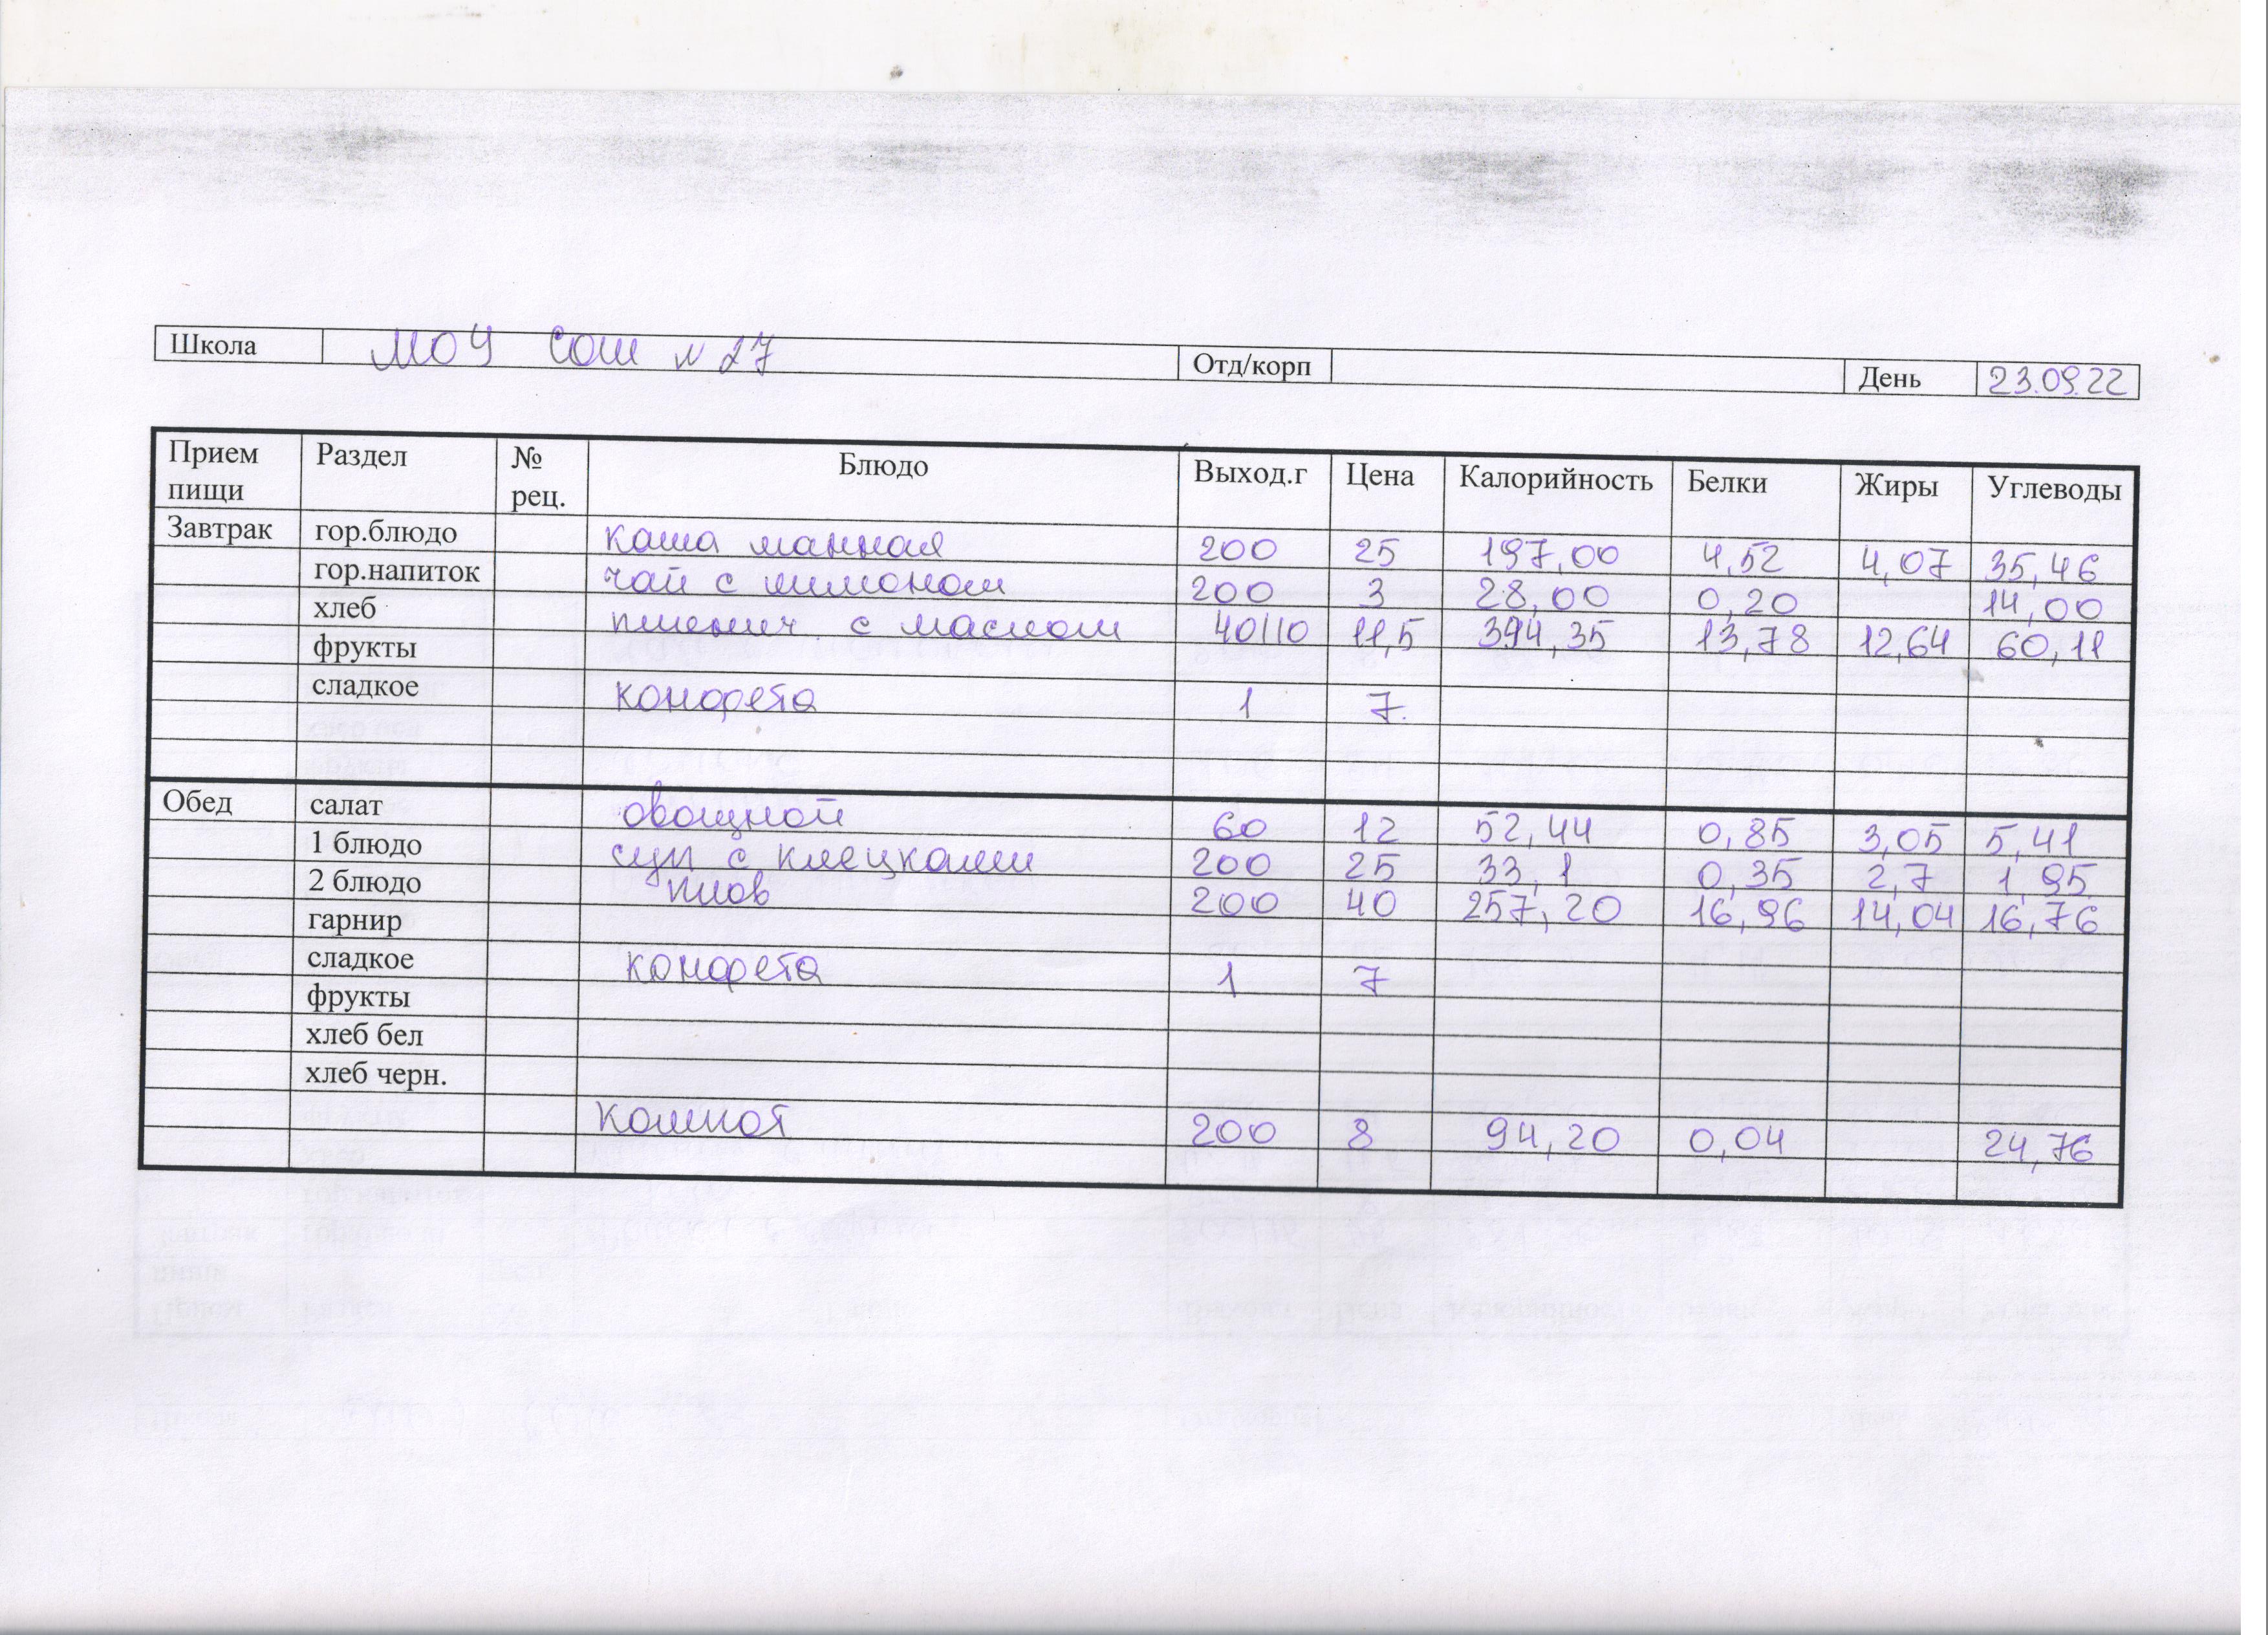 Школа МОУ СОШ N 27 Отд/корп День 23.09.22
Прием пищи Раздел № рец. Блюдо Выход.г Цена Калорийность Белки Жиры Углеводы
Завтрак гор.блюдо каша манная 200 25 197,00 4,52 4,07 35,46
гор.напиток чай с лимоном 200 3 28,00 0,20 14,00
хлеб пшенич. с маслом 40/10 11,5 394,35 13,78 12,64 60,11
фрукты
сладкое конфета 1 7.
Обед салат овощной 60 12 52,44 0,85 3,05 5,41
1 блюдо суп с клецками 200 25 33,1 0,35 2,7 1,95
2 блюдо плов 200 40 257,20 16,96 14,04 16,76
гарнир
сладкое конфета 1 7
фрукты
хлеб бел
хлеб черн.
Компот 200 8 94,20 0,04 24,76